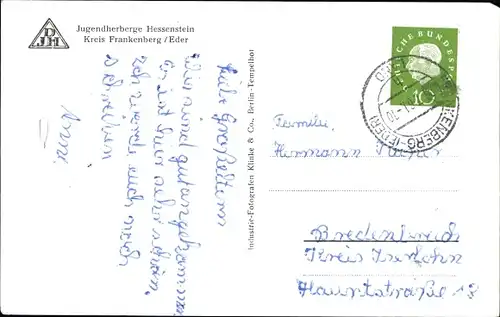 DJH
Jugendherberge Hessenstein
Kreis Frankenberg/Eder
Liebe Großeltern
Wir sind gut angekommen
Es ist hier sehr schön.
Ich würde euch noch
schreiben
Industrie-Fotografen Klinke & Co., Berlin-Tempelhof
DEUTSCHE BUNDESPOST
10
FRANKENBERG (EDER)
Familie
Hermann
Bredenbruch
Kreis Iserlohn
Hauptstraße 13